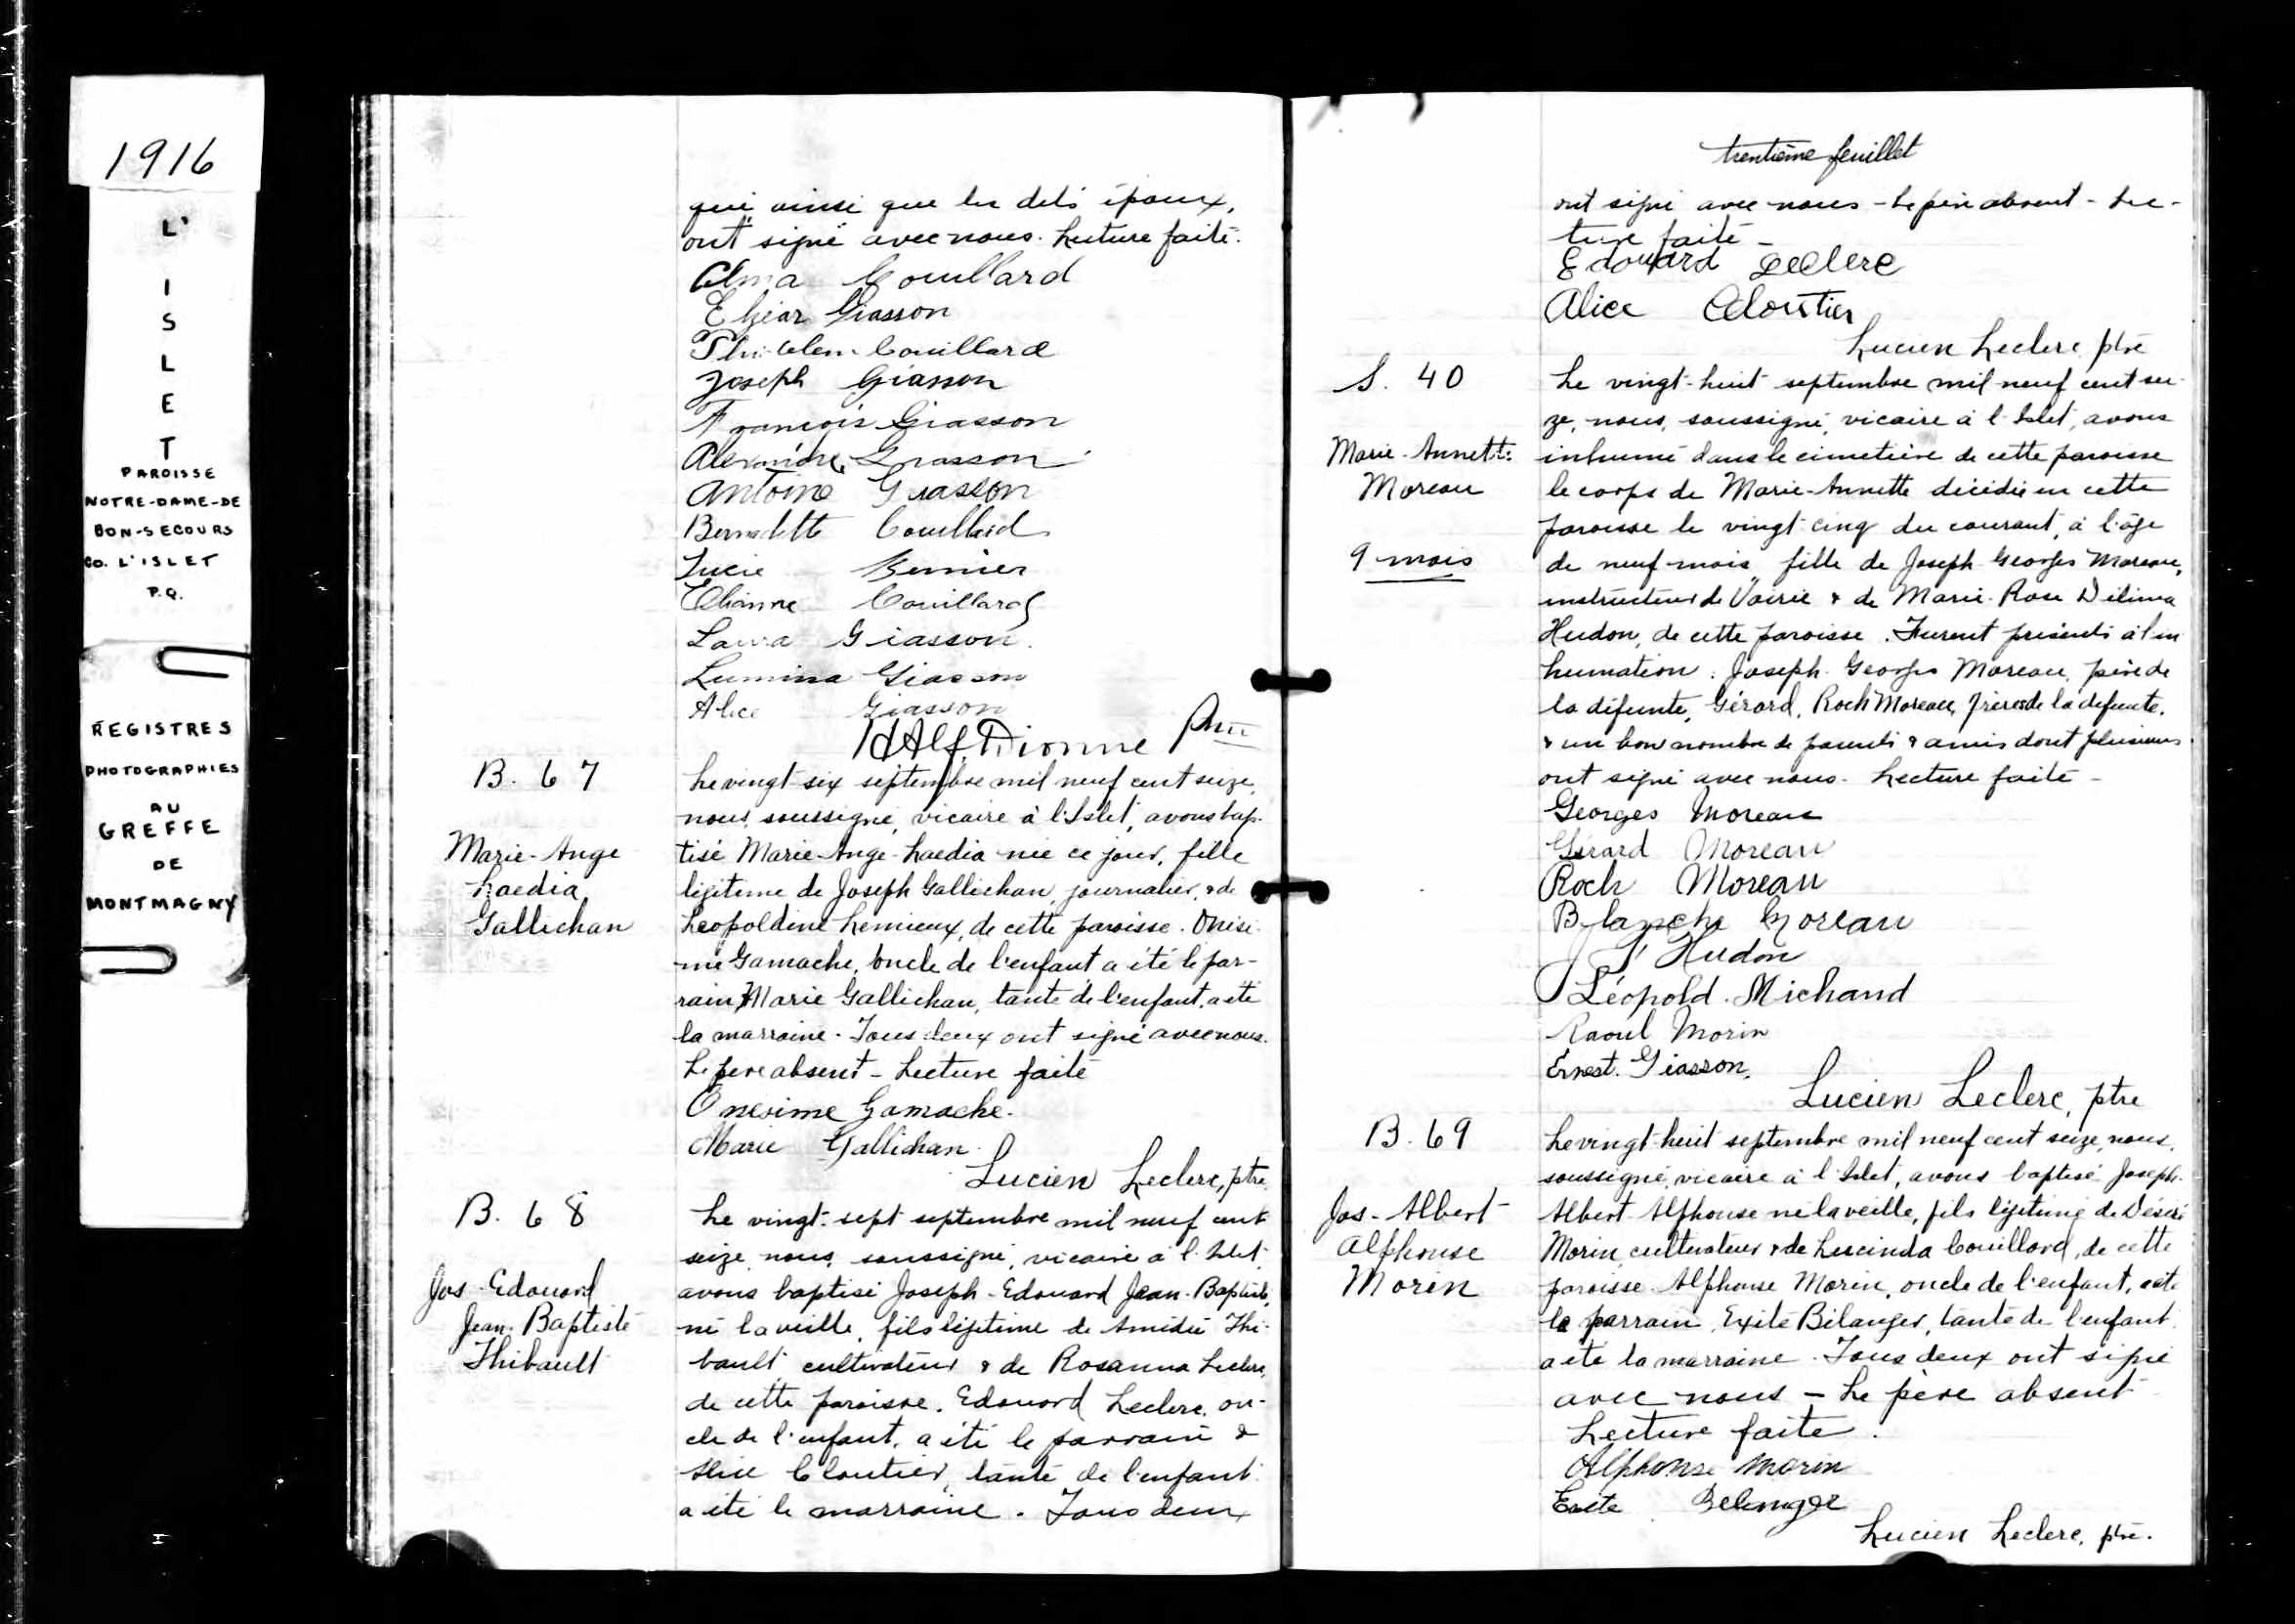 1916
L'
I
S
L
E
T
PAROISSE
NOTRE-DAME-DE
BON-SECOURS
CO. L'ISLET
P.Q.
REGISTRES
PHOTOGRAPHIES
AU
GREFFE
DE
MONTMAGNY
qui ainsi que les dits époux,
ont signé avec nous. Lecture faite.
Alma Couillard
Elzéar Giasson
Couillard
Joseph Giasson
François Giasson
Alexandre Giasson
Antoine Giasson
Bernadette Couillard
Lucie Bernier
Couillard
Laura Giasson.
Lumina Giasson
Alice Giasson
Alf. Dionne
B. 67
Marie-Ange
Laedia
Gallichan
Le vingt-six septembre mil neuf cent seize,
nous, soussigné, vicaire à l'Islet, avons bap-
tisé Marie-Ange-Laedia née ce jour, fille
légitime de Joseph Gallichan, journalier, & de
Léopoldine Lemieux, de cette paroisse. Onési-
me Gamache, oncle de l'enfant a été le par-
rain & Marie Gallichan, tante de l'enfant, a été
la marraine. Tous deux ont signé avec nous.
Le père absent - Lecture faite
Onesime Gamache.
Marie Gallichan.
Lucien Leclerc, ptre.
B. 68
Jos-Edouard
Jean-Baptiste
Thibault
Le vingt-sept septembre mil neuf cent
seize, nous, soussigné, vicaire à l'Islet,
avons baptisé Joseph-Edouard Jean-Baptiste,
né la veille, fils légitime de Amédée Thi-
bault, cultivateur & de Rosanna Leclerc,
de cette paroisse. Edouard Leclerc, on-
cle de l'enfant, a été le parrain &
Alice Cloutier, tante de l'enfant
a été la marraine. Tous deux
trentième feuillet
ont signé avec nous - Le père absent - Lec-
ture faite -
Edouard Leclerc
Alice Cloutier
Lucien Leclerc ptre
S. 40
Marie-Annette
Moreau
9 mois
Le vingt-huit septembre mil neuf cent sei-
ze, nous, soussigné, vicaire à l'Islet, avons
inhumé dans le cimetière de cette paroisse
le corps de Marie-Annette décédée en cette
paroisse le vingt-cinq du courant, à l'âge
de neuf mois, fille de Joseph-Georges Moreau,
instructeur de Voirie & de Marie-Rose Délima
Hudon, de cette paroisse. Furent présents à l'in
humation: Joseph-Georges Moreau, père de
la défunte, Gérard, Roch Moreau, frères de la défunte,
& un bon nombre de parents & amis dont plusieurs
ont signé avec nous. Lecture faite -
Georges Moreau
Gérard Moreau
Roch Moreau
Blanche Moreau
Hudon
Léopold. Michaud
Raoul Morin
Ernest. Giasson.
Lucien Leclerc, ptre
B. 69
Jos-Albert
Alphonse
Morin
Le vingt-huit septembre mil neuf cent seize, nous,
soussigné, vicaire à l'Islet, avons baptisé Joseph-
Albert-Alphonse né la veille, fils légitime de Désiré
Morin, cultivateur & de Lucinda Couillard, de cette
paroisse. Alphonse Morin, oncle de l'enfant, a été
le parrain, Exité Bélanger, tante de l'enfant
a été la marraine. Tous deux ont signé
avec nous - Le père absent
Lecture faite.
Alphonse Morin
Belanger
Lucien Leclerc, ptre.